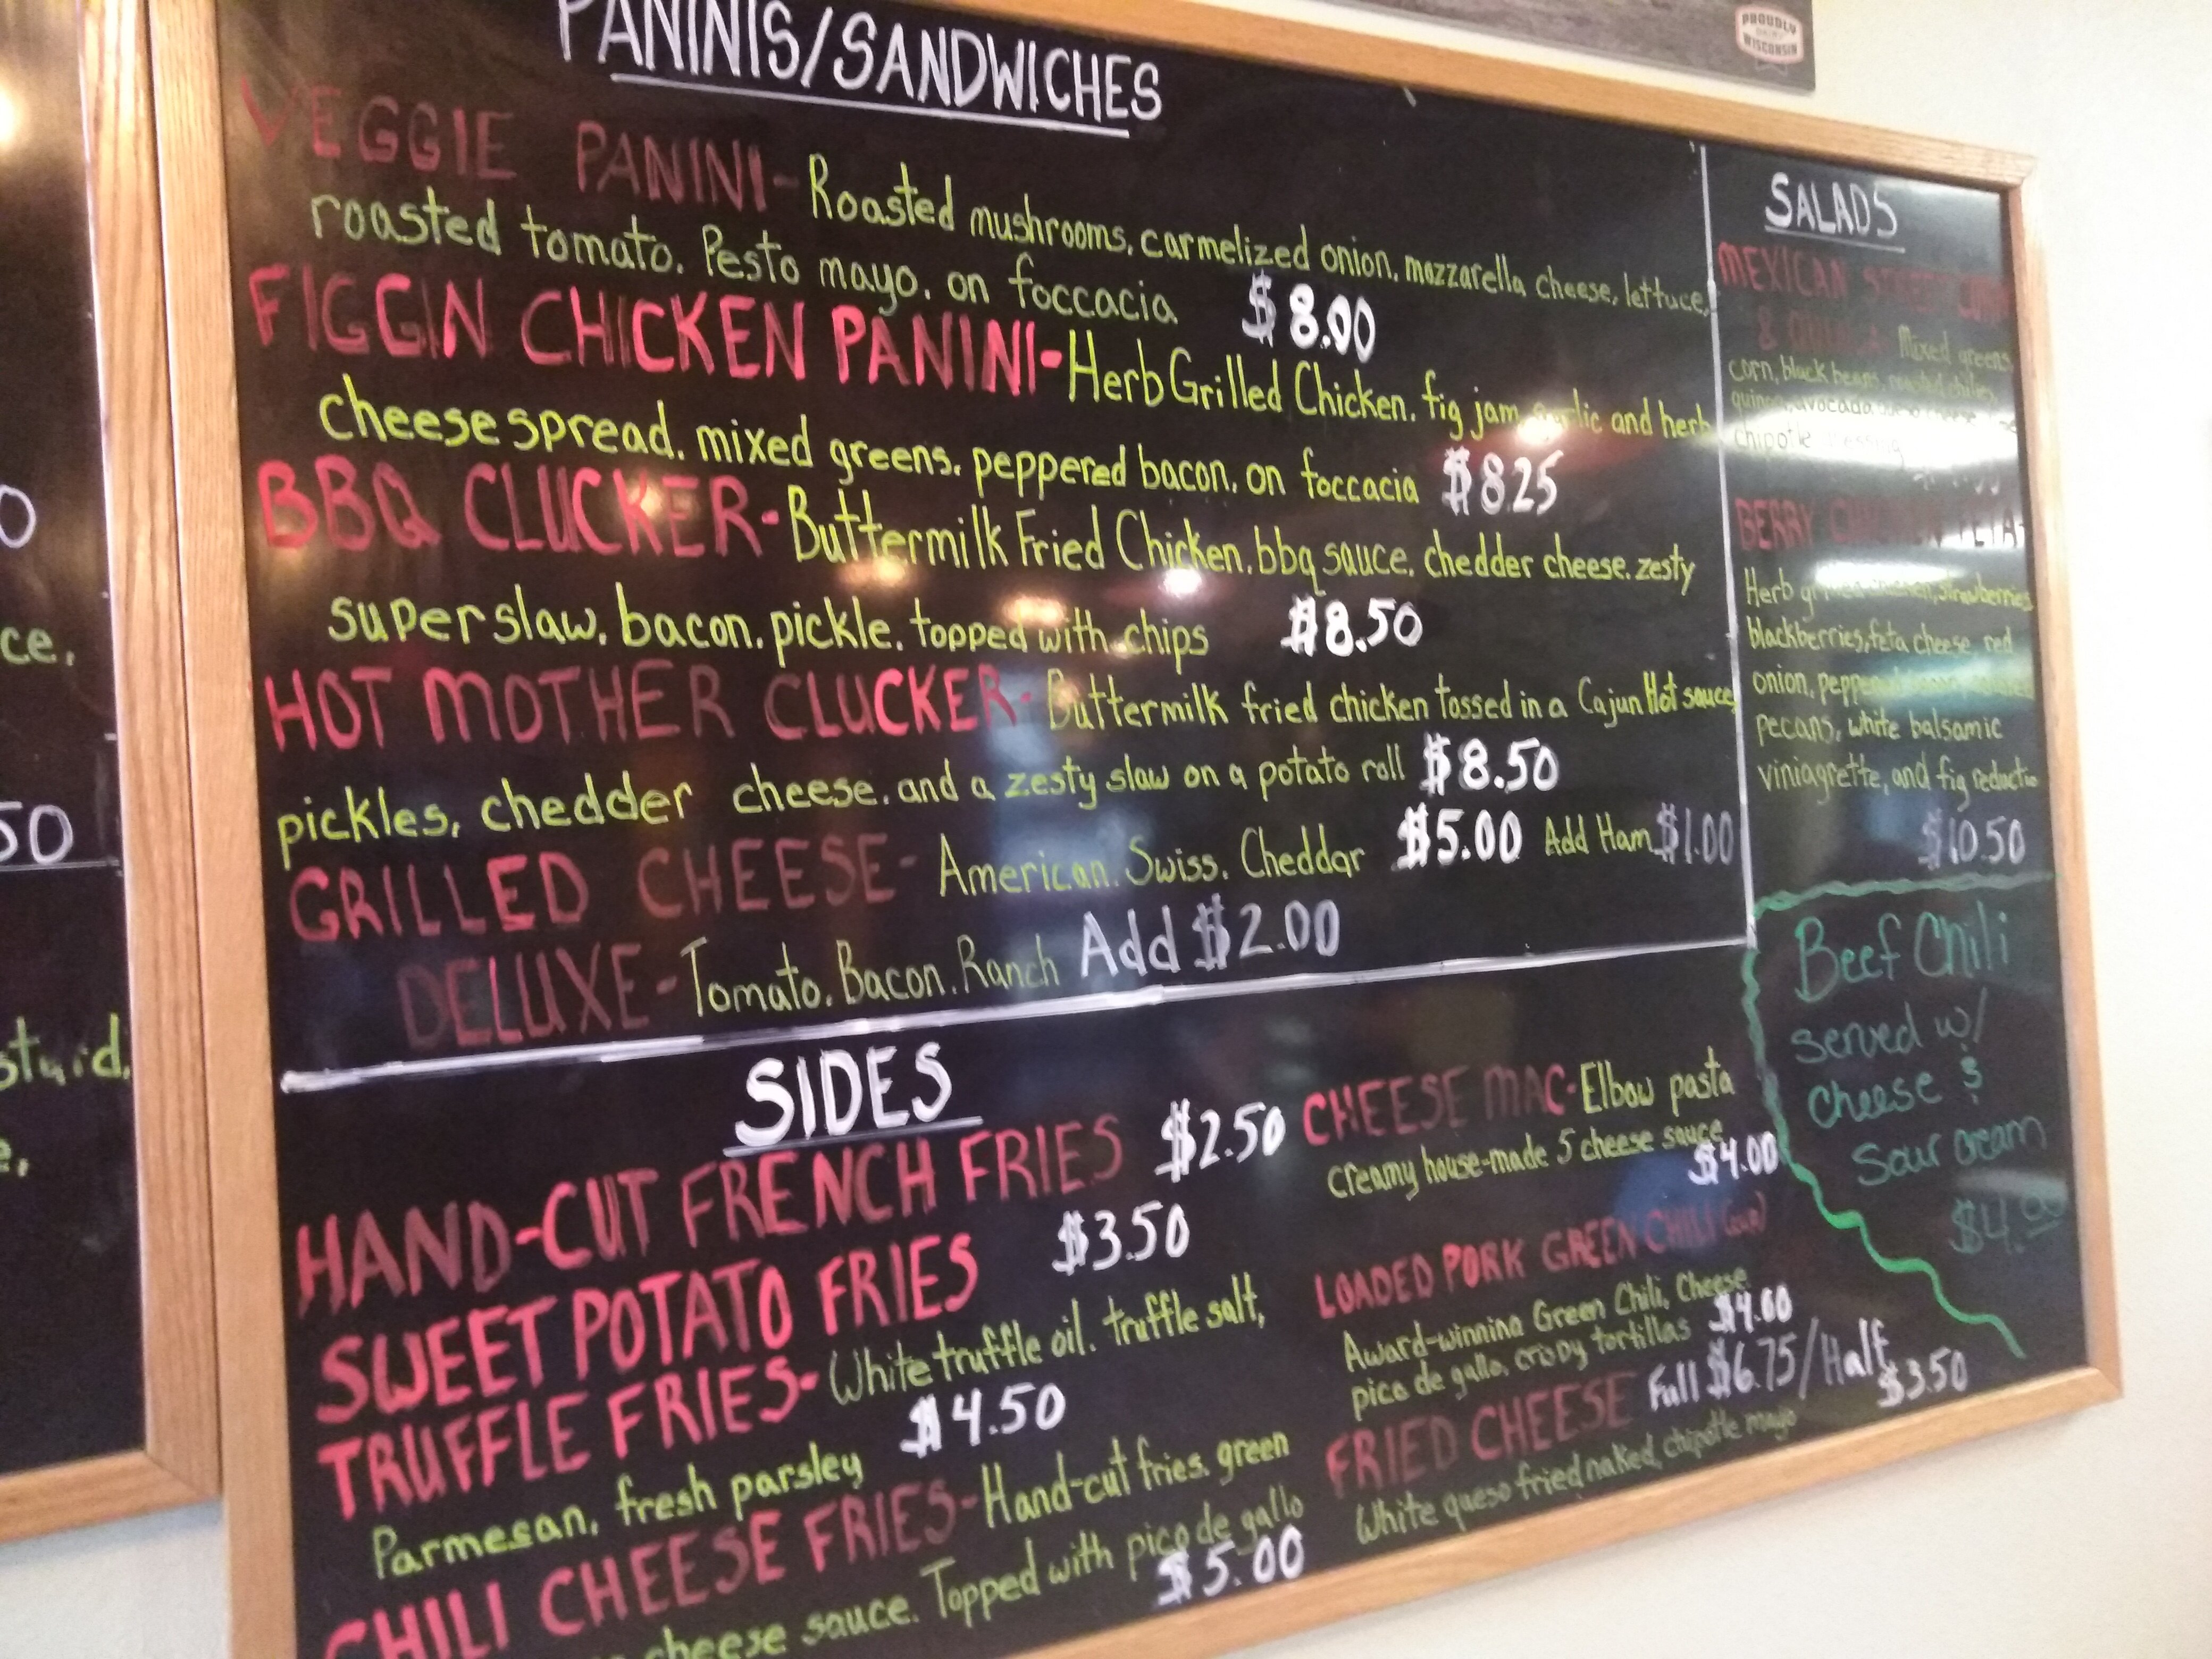 PROUDLY
WISCONSIN
PANINIS/SANDWICHES
VEGGIE PANINI- Roasted mushrooms, carmelized onion, mozzarella cheese, lettuce,
roasted tomato. Pesto mayo. on foccacia $8.00
FIGGIN CHICKEN PANINI- Herb Grilled Chicken. fig jam, garlic and herb
cheese spread. mixed greens. peppered bacon. on foccacia $8.25
BBQ CLUCKER- Buttermilk Fried Chicken. bbq sauce. chedder cheese. zesty
super slaw. bacon. pickle. topped with chips $8.50
HOT MOTHER CLUCKER- Buttermilk fried chicken tossed in a Cajun Hot sauce,
pickles, chedder cheese. and a zesty slaw on a potato roll $8.50
GRILLED CHEESE- American. Swiss. Cheddar $5.00 Add Ham $1.00
DELUXE- Tomato. Bacon. Ranch Add $2.00
SIDES
HAND-CUT FRENCH FRIES $2.50
SWEET POTATO FRIES $3.50
TRUFFLE FRIES- White truffle oil. truffle salt,
Parmesan. fresh parsley $4.50
CHILI CHEESE FRIES- Hand-cut fries. green
cheese sauce. Topped with pico de gallo
$5.00
CHEESE MAC- Elbow pasta
creamy house-made 5 cheese sauce
$4.00
LOADED PORK GREEN CHILI (cup)
Award-winning Green Chili, Cheese
pico de gallo, crispy tortillas $4.00
FRIED CHEESE Full $6.75/Half
$3.50
White queso fried naked, chipotle mayo
SALADS
MEXICAN STREET CORN
& Mixed greens,
corn, black beans, roasted
quinoa, avocado
chipotle dressing
BERRY CHICKEN FETA-
Herb grilled chicken, strawberries
blackberries, feta cheese red
onion, peppered
pecans, white balsamic
viniagrette, and fig reductio
$10.50
Beef Chili
served w/
cheese &
Sour cream
$4.00
0
ce,
50